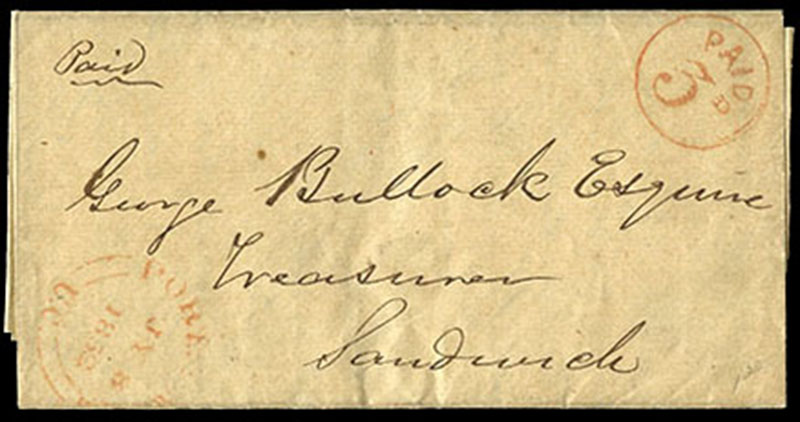 Paid
PAID
3
George Bullock Esquire
Treasurer
Sandwich
PORT
U.C.
JY